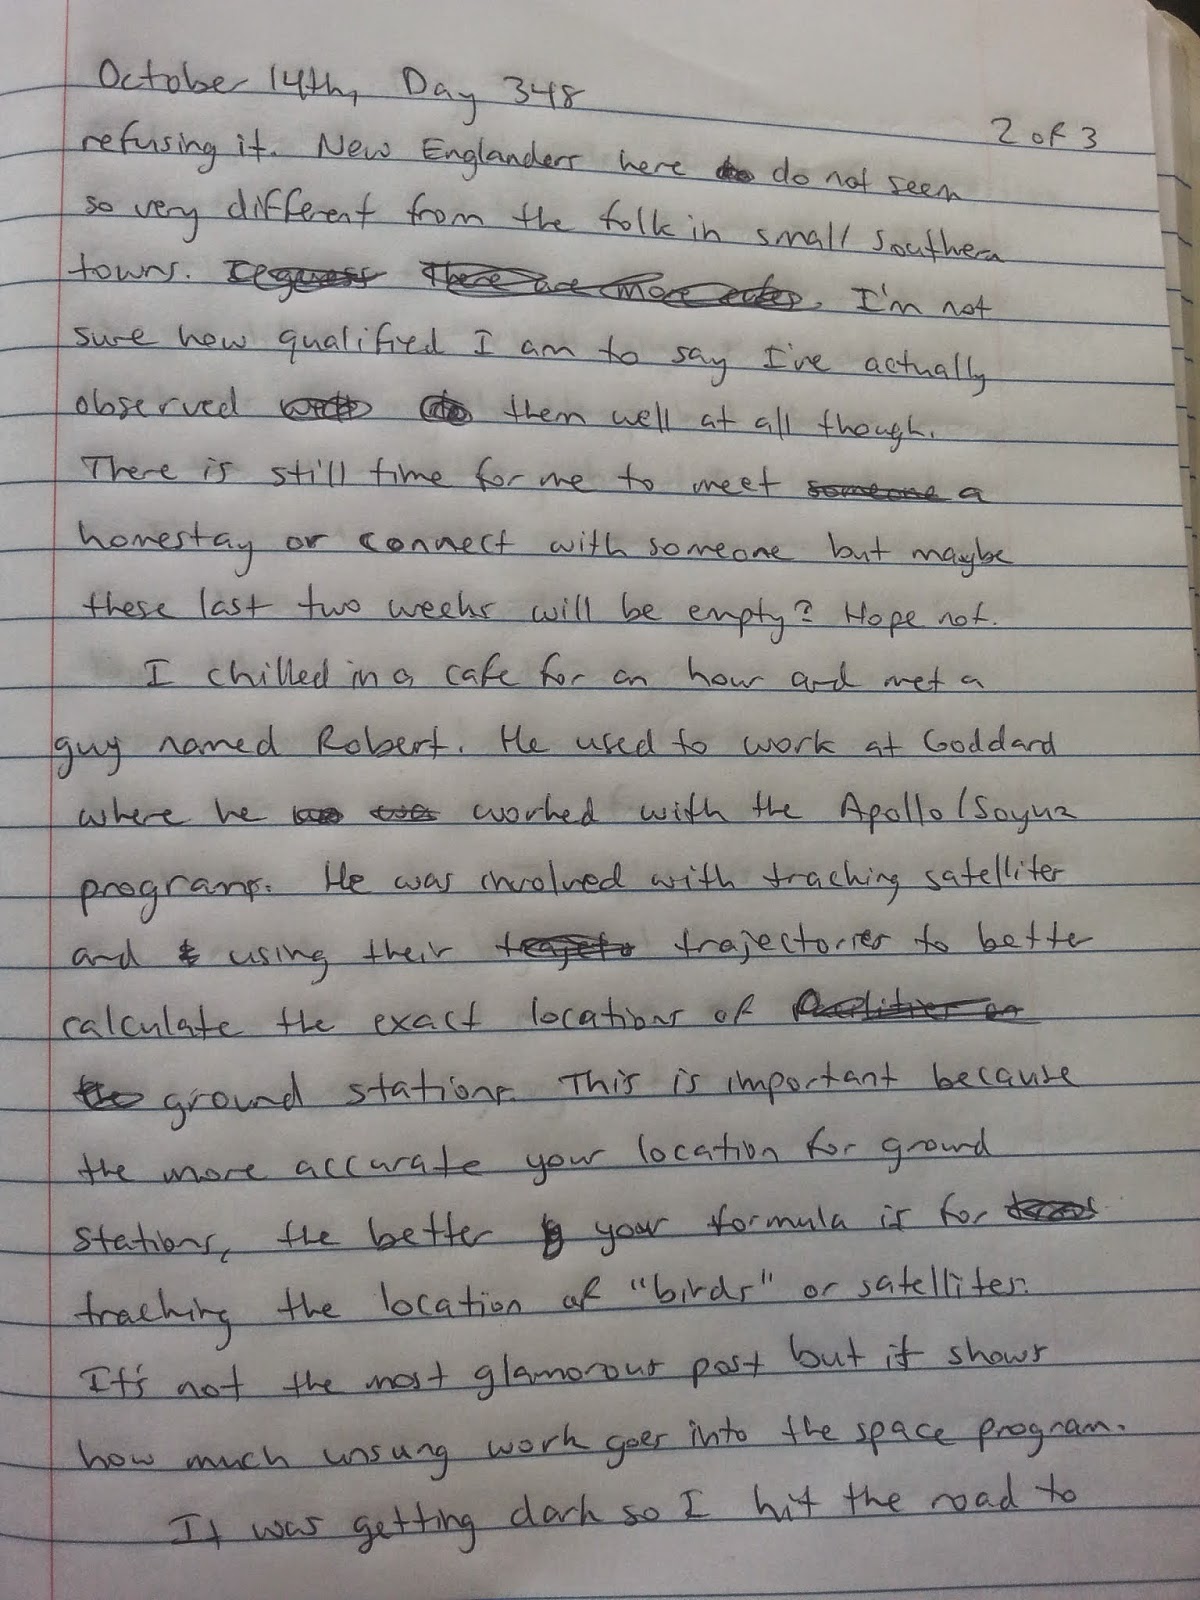 October 14th, Day 348
2 of 3
refusing it. New Englanders here do not seem
so very different from the folk in small southern
towns. I guess There are more I'm not
sure how qualified I am to say I've actually
observed them well at all though.
There is still time for me to meet someone a
homestay or connect with someone but maybe
these last two weeks will be empty? Hope not.
I chilled in a cafe for an hour and met a
guy named Robert. He used to work at Goddard
where he was worked with the Apollo/Soyuz
programs. He was involved with tracking satellites
and using their trajectories to better
calculate the exact locations of
ground stations. This is important because
the more accurate your location for ground
stations, the better your formula is for
tracking the location of "birds" or satellites.
It's not the most glamorous post but it shows
how much unsung work goes into the space program.
It was getting dark so I hit the road to